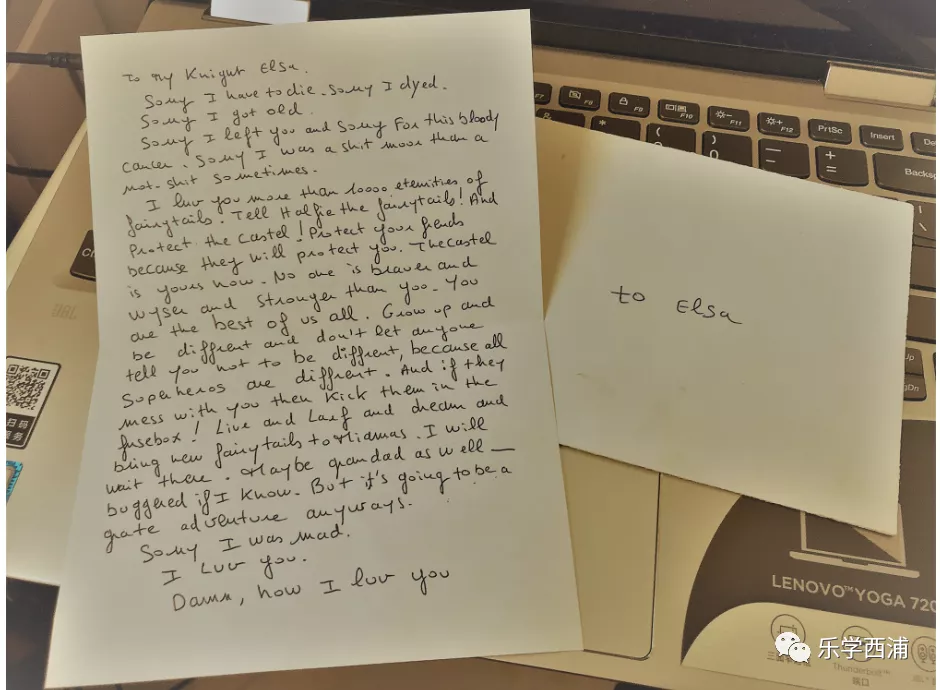 To my Knight Elsa.
Sorry I have to die. Sorry I dyed.
Sorry I got old.
Sorry I left you and Sorry For this bloody
cancer. Sorry I was a shit moor than a
not-shit sometimes.
I luv you more than 10000 eternities of
fairytails. Tell Halfie the fairytails! And
Protect the Castel! Protect your friends
because they will protect you. The Castel
is yours now. No one is braver and
wyser and stronger than yoo. You
are the best of us all. Grow up and
be diffrent and don't let anyone
tell you not to be diffrent, because all
Superheros are diffrent. And if they
mess with you then Kick them in the
fusebox! Live and Laef and dream and
bring new fairytails to Miamas. I will
wait there. Maybe grandad as well —
buggered if I Know. But it's going to be a
grate adventure anyways.
Sorry I was mad.
I Luv you.
Damn, how I luv you
to Elsa
F7
F8
F9
F10
F11
F12
PrtSc
Insert
De
Backsp
Up
gDn
JBL
扫码
服务
LENOVO™ YOGA 720
Thunderbolt™
端口
乐学西浦